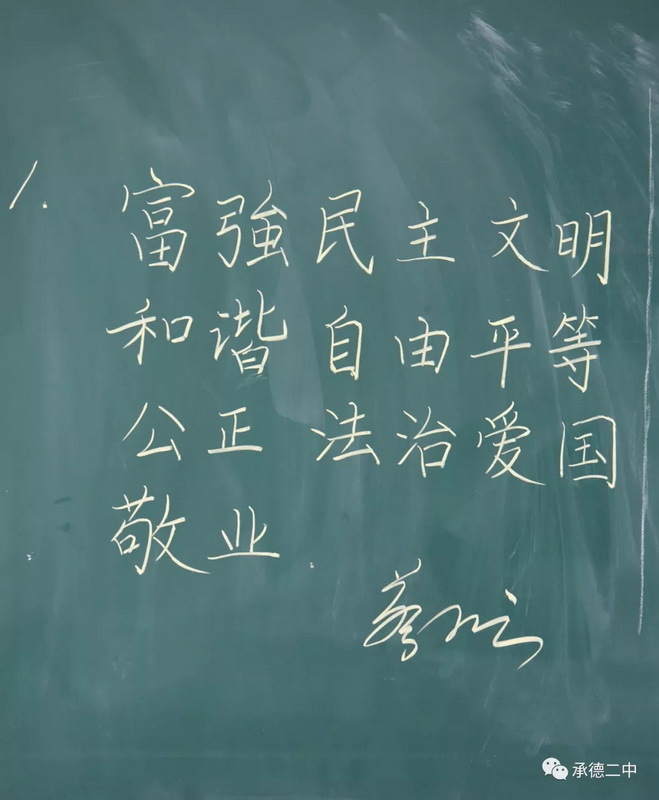 1.
富強民主文明
和谐自由平等
公正法治爱国
敬业.
承德二中